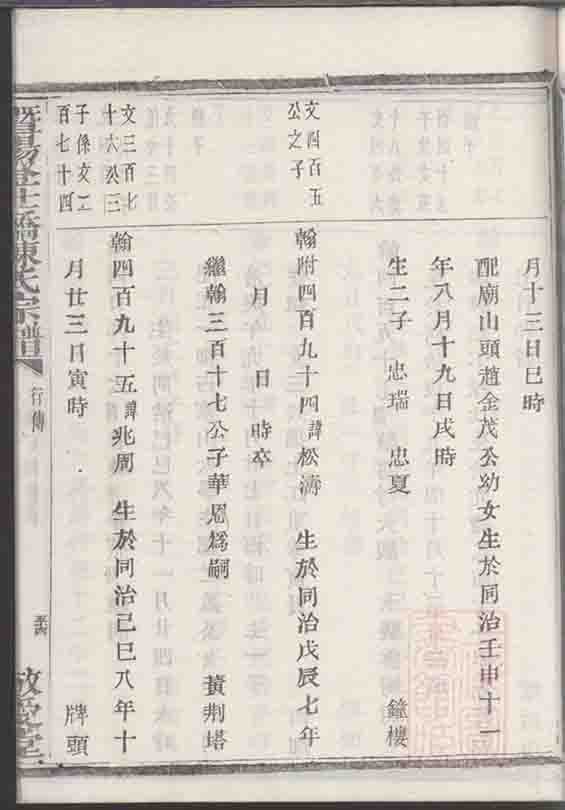 月十三日巳時
配廟山頭趙金茂公幼女生於同治壬申十一
年八月十九日戌時
生二子　忠瑞　忠夏　鐘樓
文四百五
公之子
翰附四百九十四諱松濤　生於同治戊辰七年
月　日　時卒
繼翰三百十七公子華恩為嗣　黃荆塔
文三百七
十六公三
子係文二
百七十四
翰四百九十五諱兆周　生於同治己巳八年十
月廿三日寅時　牌頭
暨陽
橋陳氏宗譜
行傳
敘堂